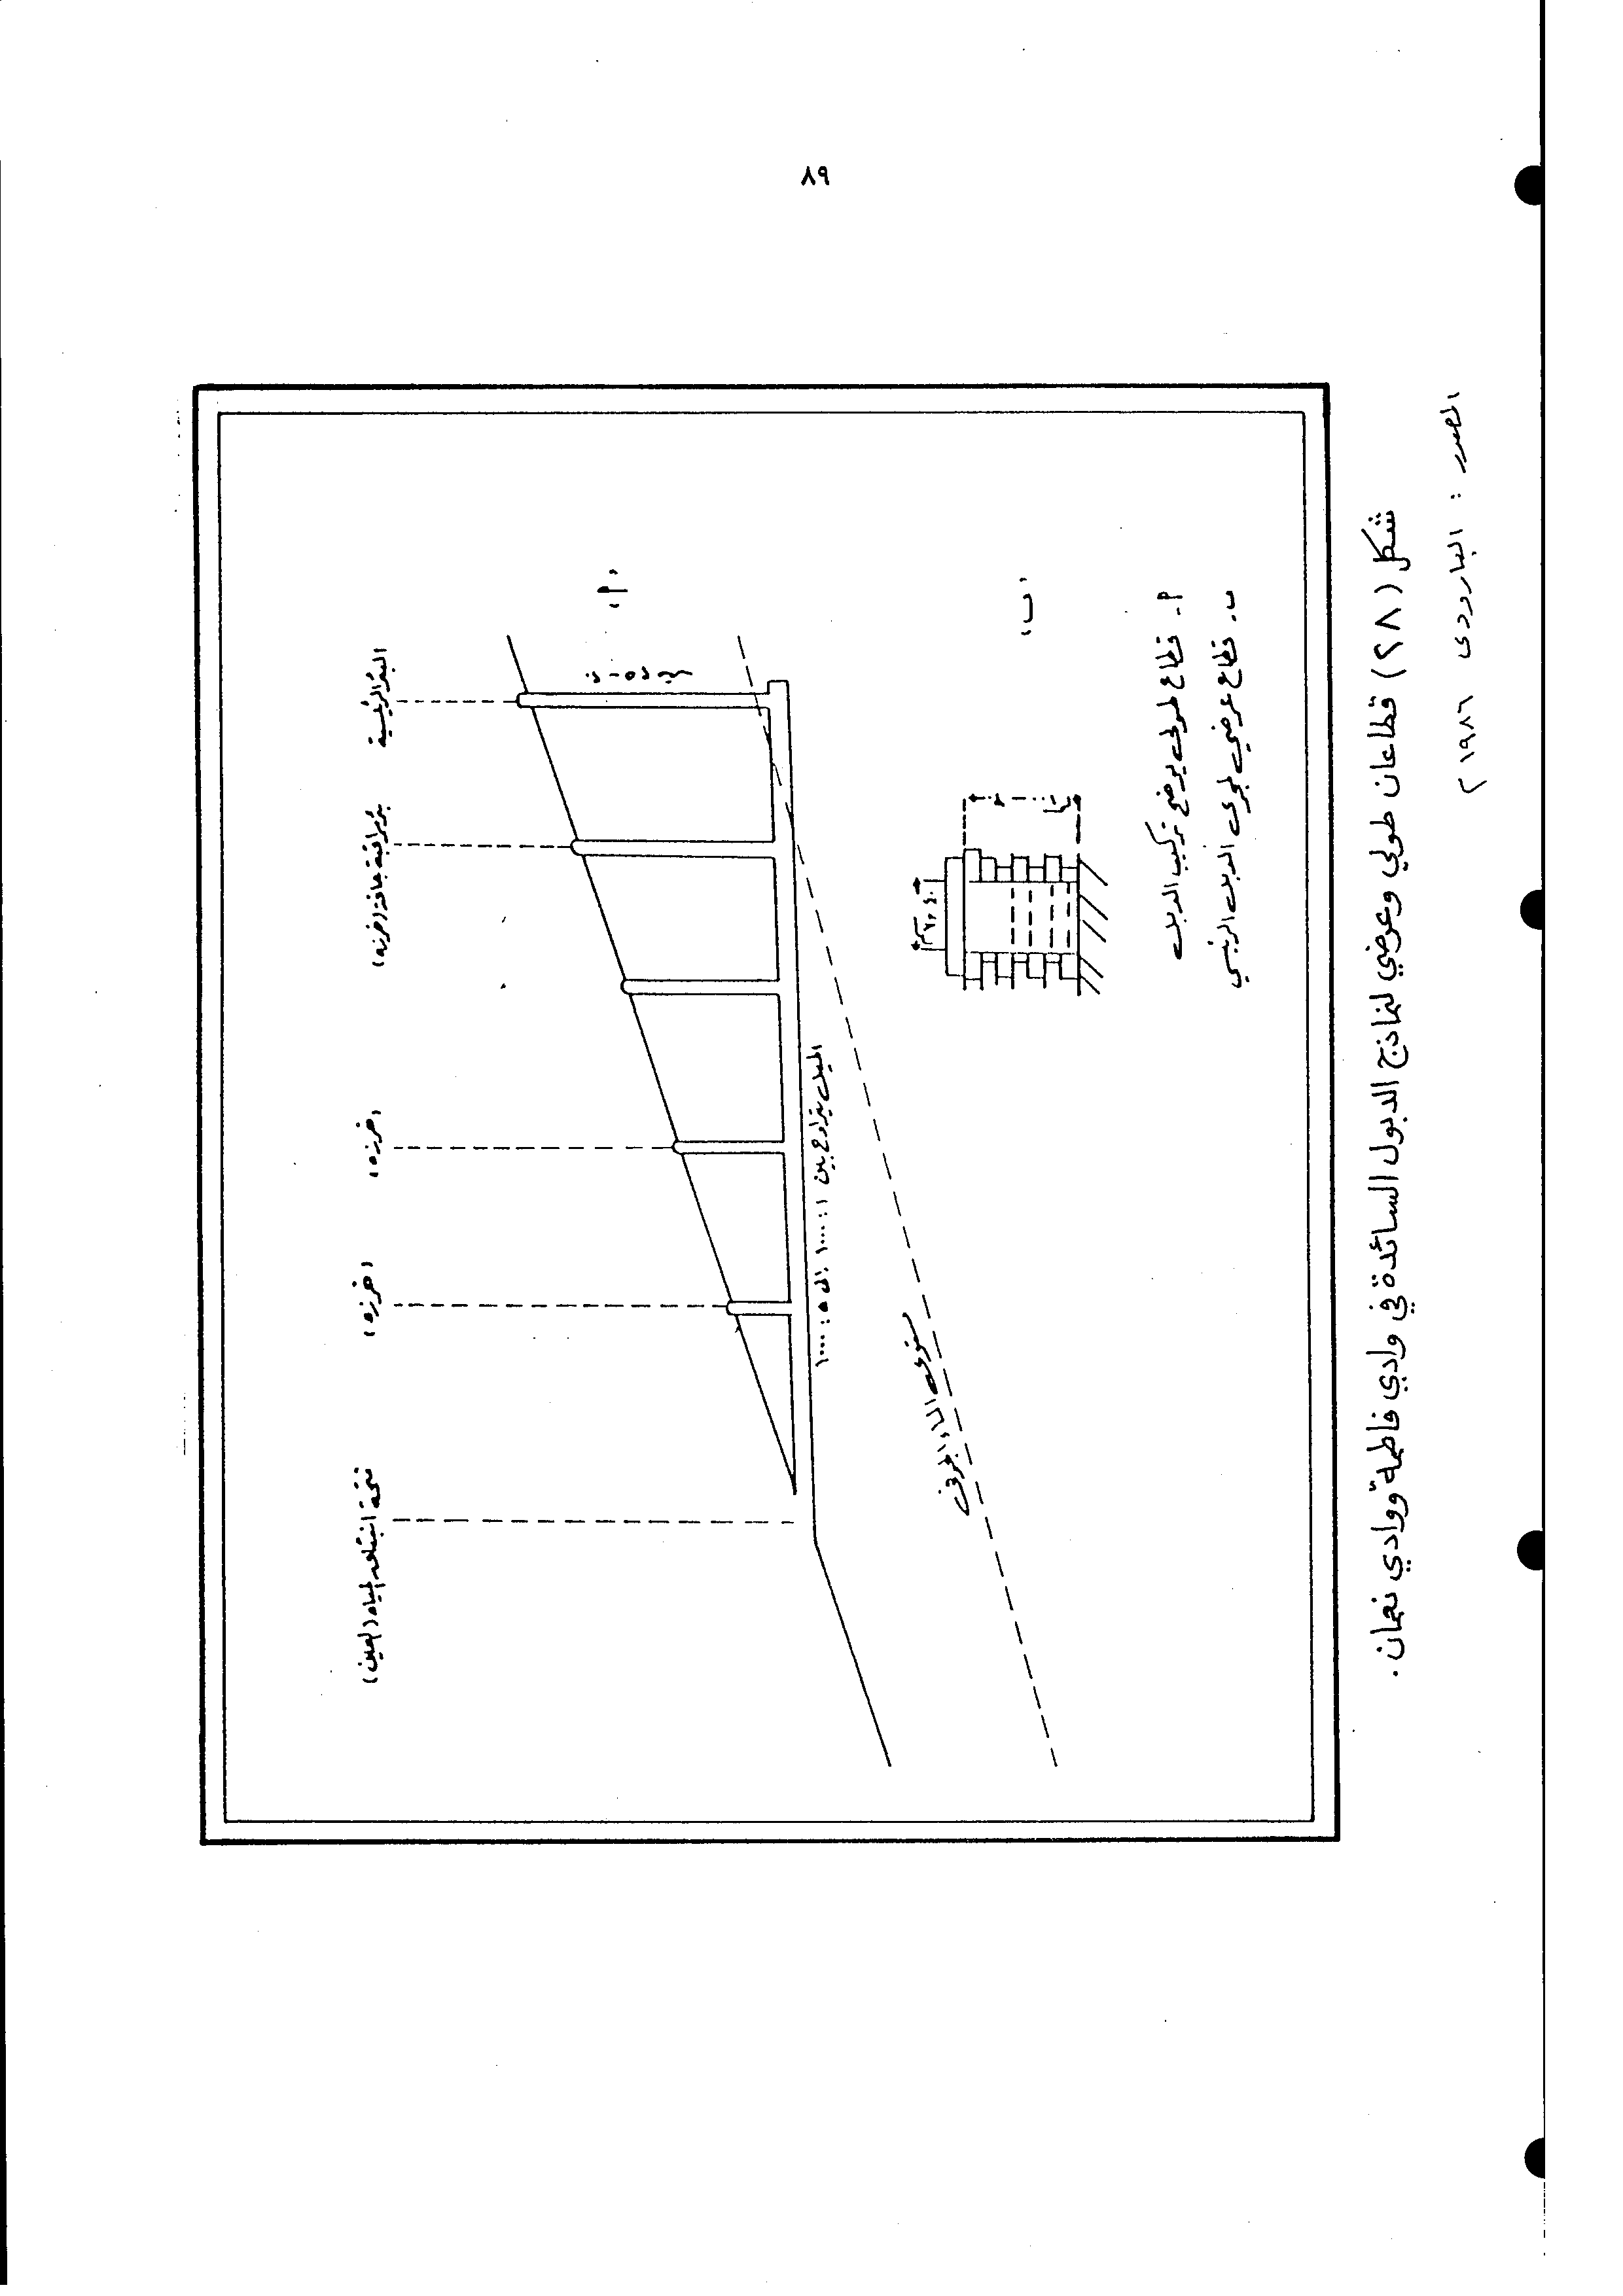 ٨٩
البئر الرئيسية
بئر مراقبة جافة (خرزه)
(خرزه)
(خرزه)
فتحة انبثاق المياه (العين)
(أ)
الميل يتراوح بين ١ : ١٠٠٠ الى ٥ : ١٠٠٠
مستوى الماء الجوفى
(ب)
أ - قطاع طولى يوضح تركيب الدبل
ب - قطاع عرضى لمجرى الدبل الرئيسي
شكل (٢٨) قطاعان طولي وعرضي لنماذج الدبول السائدة في وادي فاطمة ووادي نعمان .
المصدر : البارودى ١٩٨٦ م